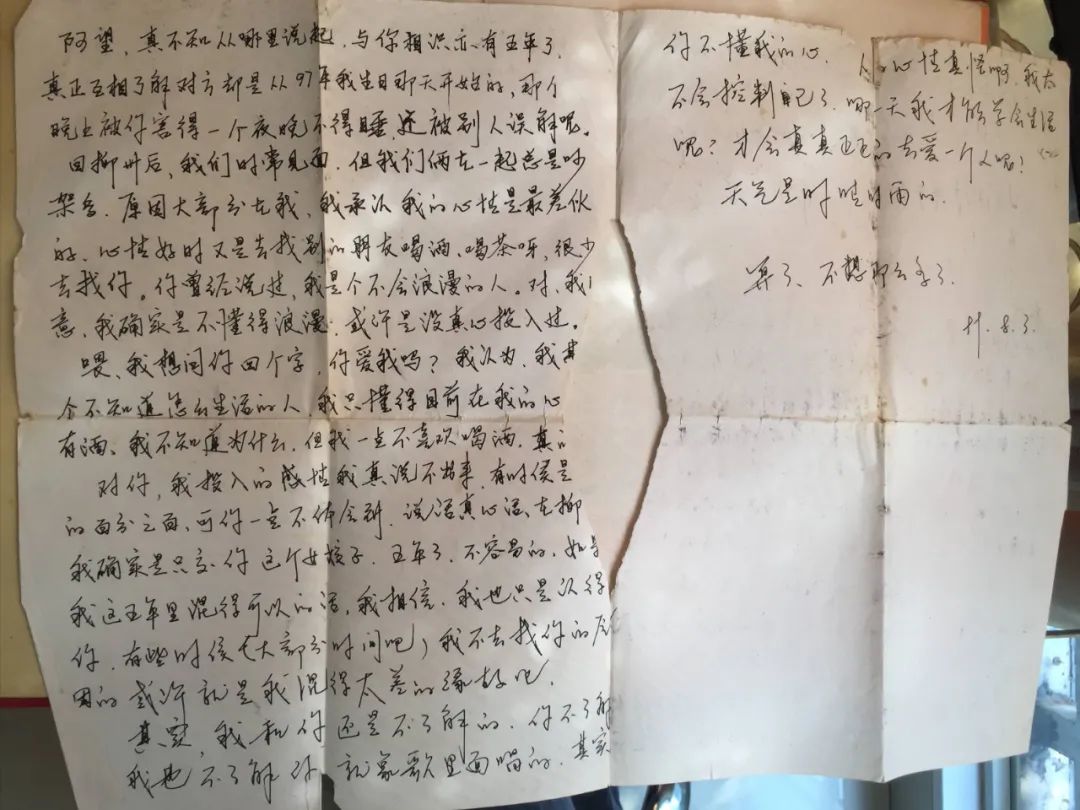 阿望，真不知从哪里说起，与你相识亦有五年了，
真正互相了解对方却是从97年我生日那天开始的，那个
晚上被你害得一个夜晚不得睡还被别人误解呢。
回柳州后，我们时常见面，但我们俩在一起总是吵
架多，原因大部分在我，我承认我的心情是最差伙
的、心情好时又是去找别的朋友喝酒、喝茶呀，很少
去找你。你曾经说过，我是个不会浪漫的人。对、我
意，我确实是不懂得浪漫，或许是没真心投入过。
喂、我想问你四个字，你爱我吗？我认为，我其
个不知道怎么生活的人，我只懂得目前在我的心
有酒、我不知道为什么，但我一点不喜欢喝酒，真的
对你，我投入的感情我真说不出来，有时候是
的百分之百、可你一点不体会到，说活真心话、在柳
我确实是只交你这个女孩子，五年了，不容易的，如果
我这五年里混得可以的话，我相信，我也只是认得
你，有些时侯（大部分时间吧）我不去找你的原
因的或许就是我混得太差的缘故吧，
其实，我和你还是不了解的，你不了解
我也不了解你，就象歌里面唱的，其实
你不懂我的心，人的心情真怪啊，我太
不会控制自己了，哪一天我才能学会生活
呢？才会真真正正的去爱一个人呢？
天气是时晴时雨的，
算了、不想那么多了
8.3.